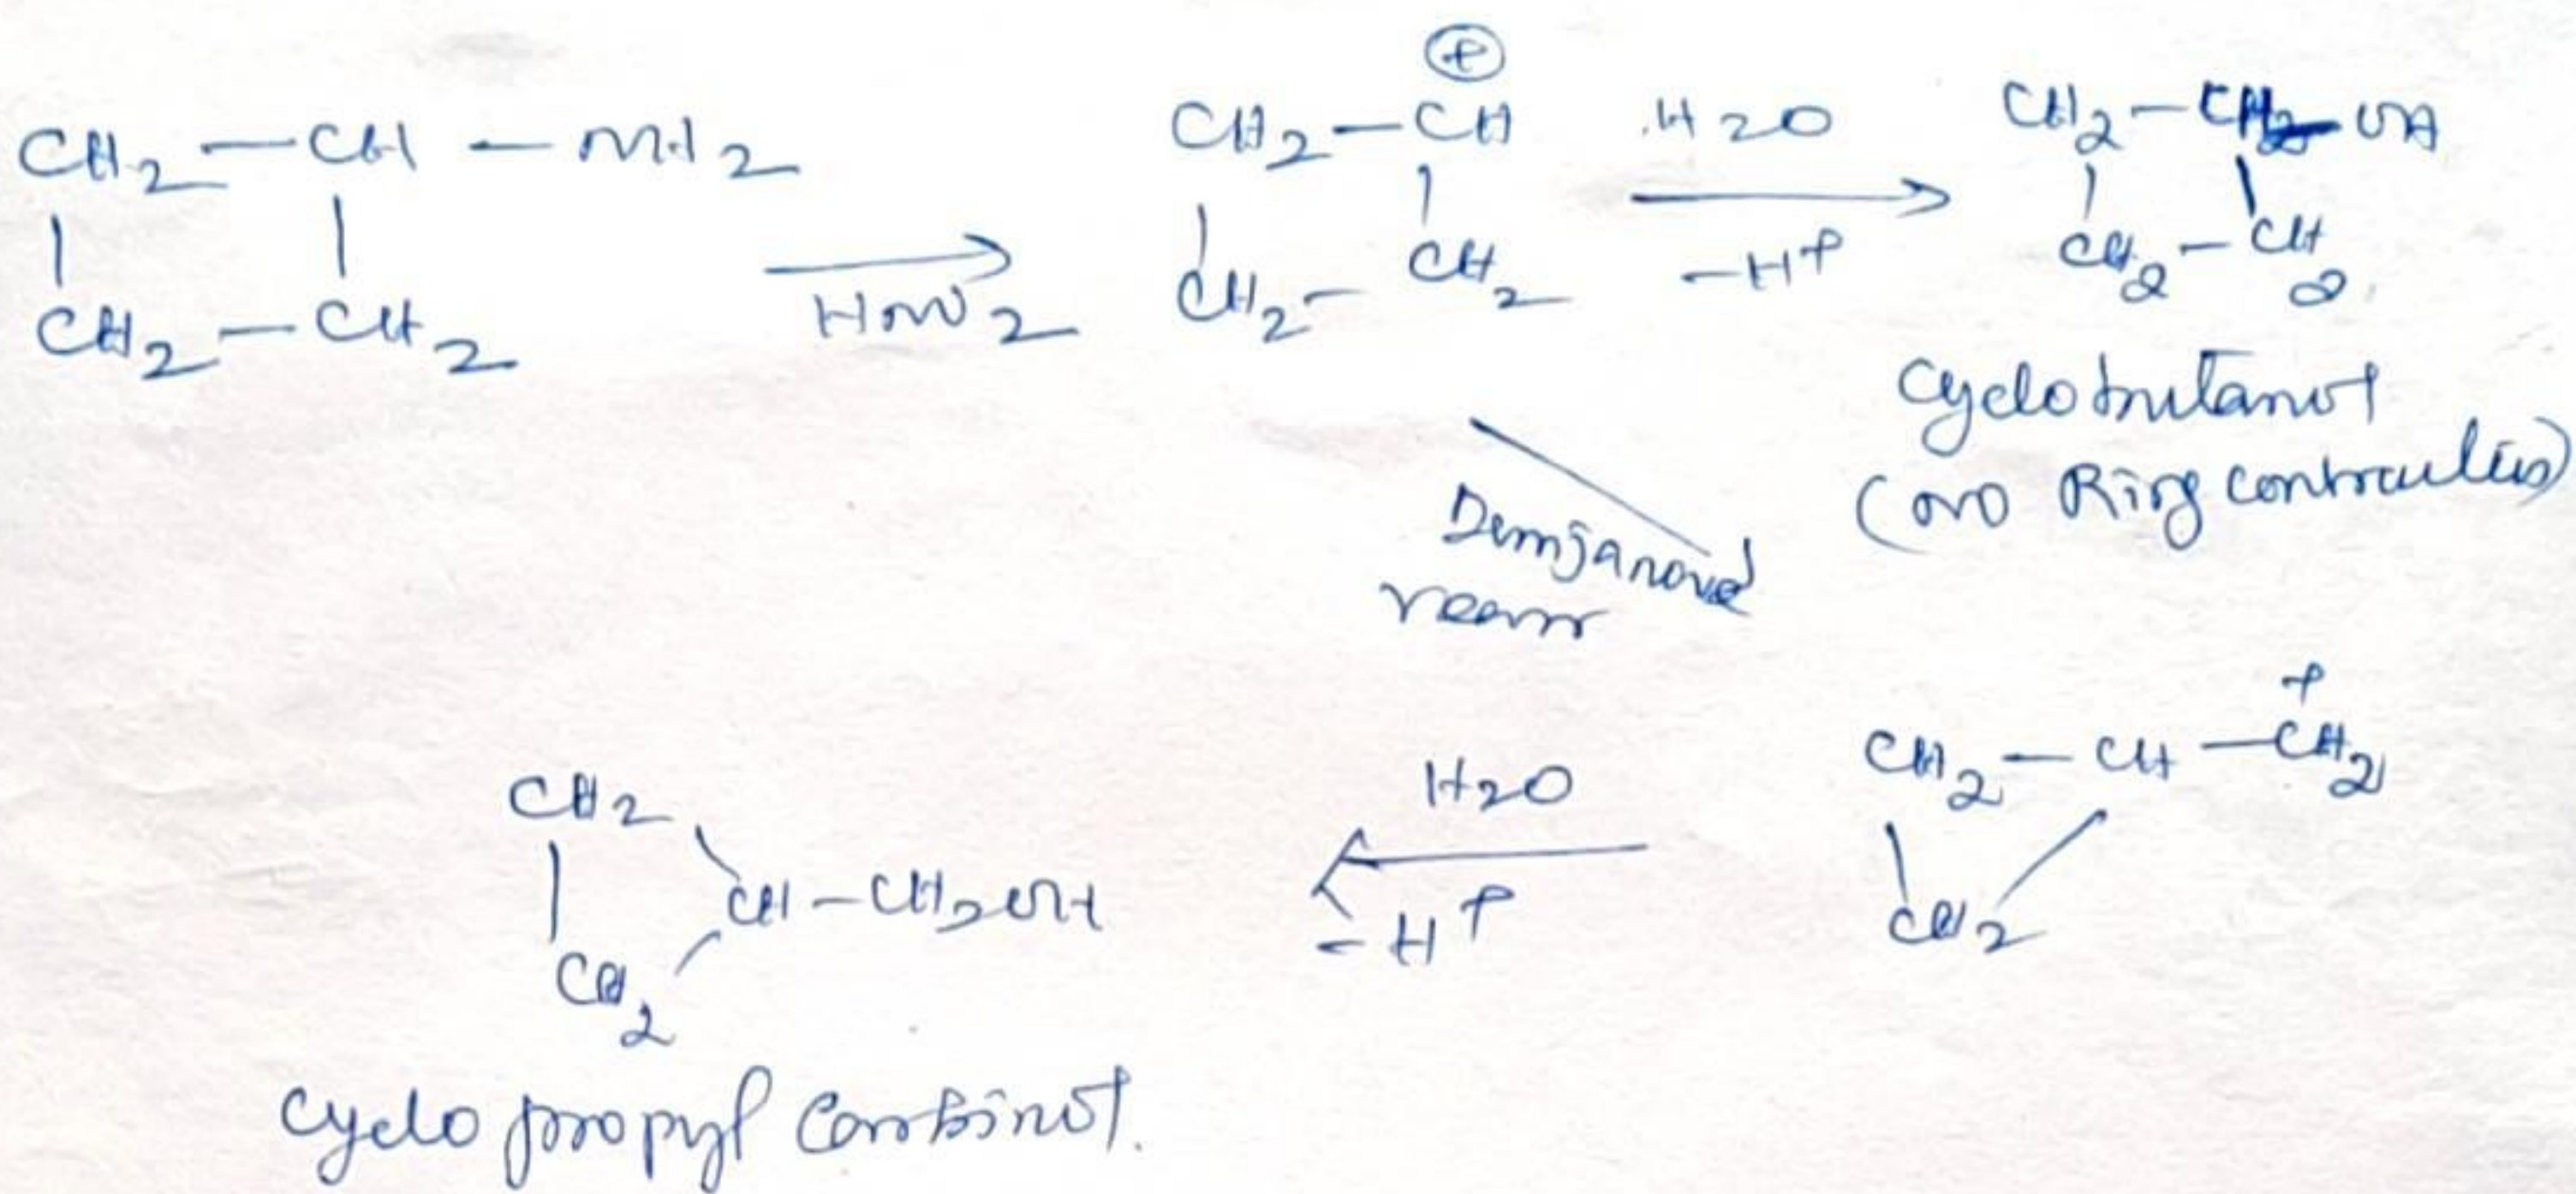 CH2 — CH — NH2
| |
CH2 — CH2
HNO2
⊕
CH2 — CH
| |
CH2 — CH2
H2O
-H+
CH2 — CH — OH
| |
CH2 — CH2
Cyclobutanol
(no Ring contraction)
Demjanov
rearr
CH2 — CH — +CH2
\ /
CH2
H2O
-H+
CH2
| \
CH — CH2OH
| /
CH2
Cyclo propyl Carbinol.